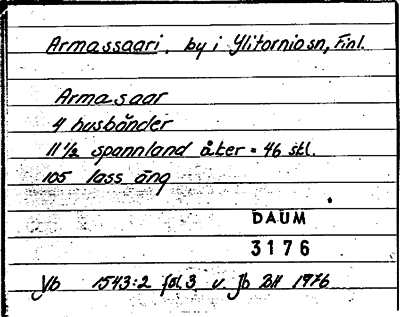 Armassaari, by i Ylitorniosn, Finl.
Armasaar
4 husbönder
11 1/2 spannland åker = 46 stl.
105 lass äng
DAUM
3176
Jb 1543:2 fol 3 v. Jb BH 1976